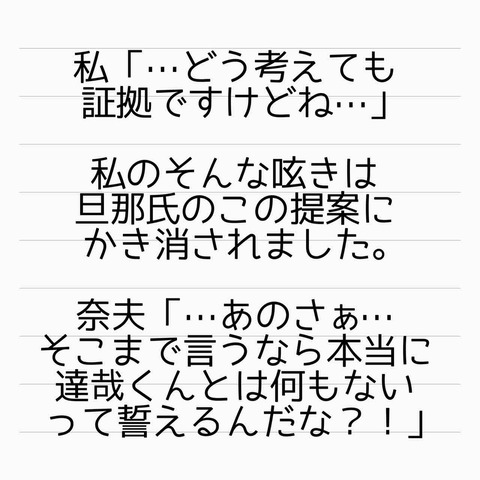 私「…どう考えても
証拠ですけどね…」
私のそんな呟きは
旦那氏のこの提案に
かき消されました。
奈夫「…あのさぁ…
そこまで言うなら本当に
達哉くんとは何もない
って誓えるんだな？！」